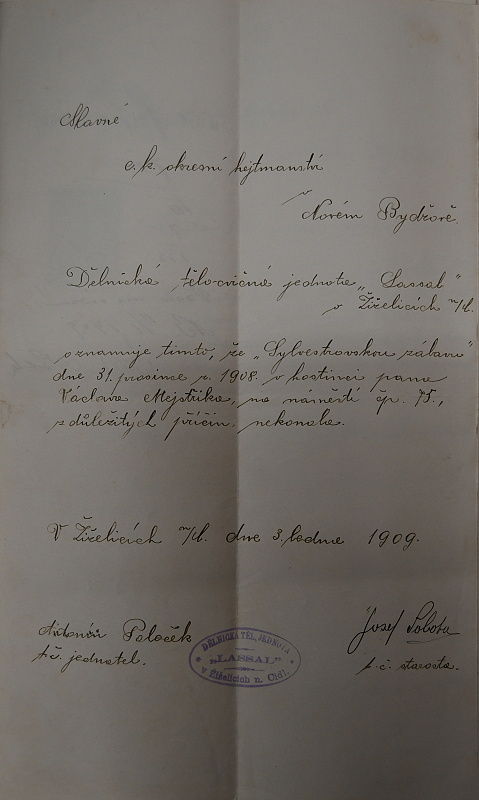 Slavné
c. k. okresní hejtmanství
v
Novém Bydžově.
Dělnická tělocvičná jednota „Lassal"
v Žiželicích n/C.
oznamuje tímto, že „Sylvestrovskou zábavu"
dne 31. prosince r. 1908. v hostinci pana
Václava Mejstříka, na náměstí čp. 75.,
z důležitých příčin, nekonala.
V Žiželicích n/C. dne 3. ledna 1909.
Antonín Poláček
t. č. jednatel.
DĚLNICKÁ TĚL. JEDNOTA
„LASSAL"
v Žiželicích n. Cidl.
Josef Sobota
t. č. starosta.